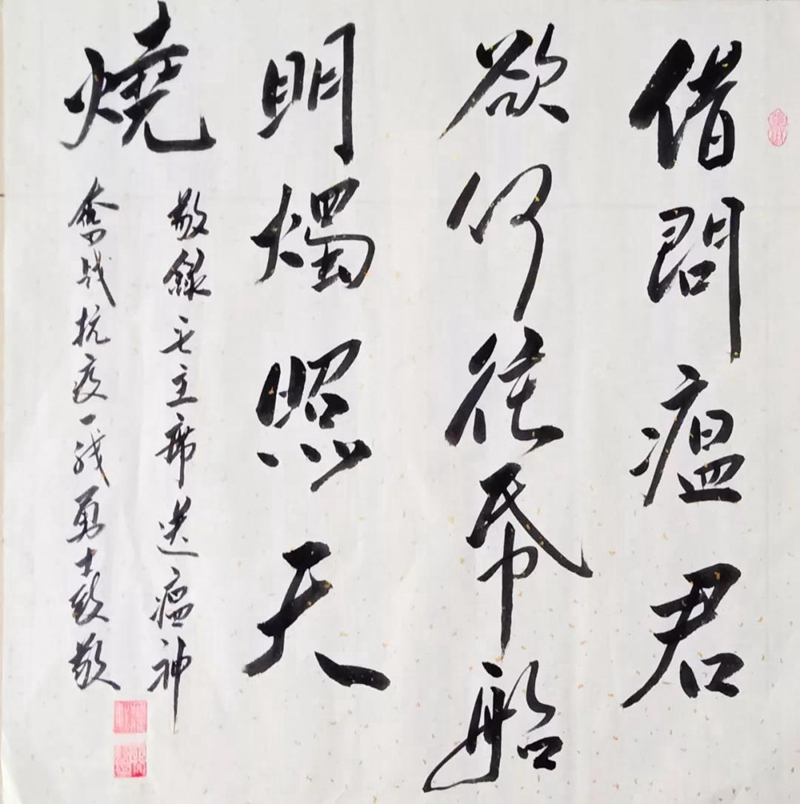 借問瘟君
欲何往帋船
明燭照天
燒
敬錄毛主席送瘟神
奋战抗疫一线勇士致敬